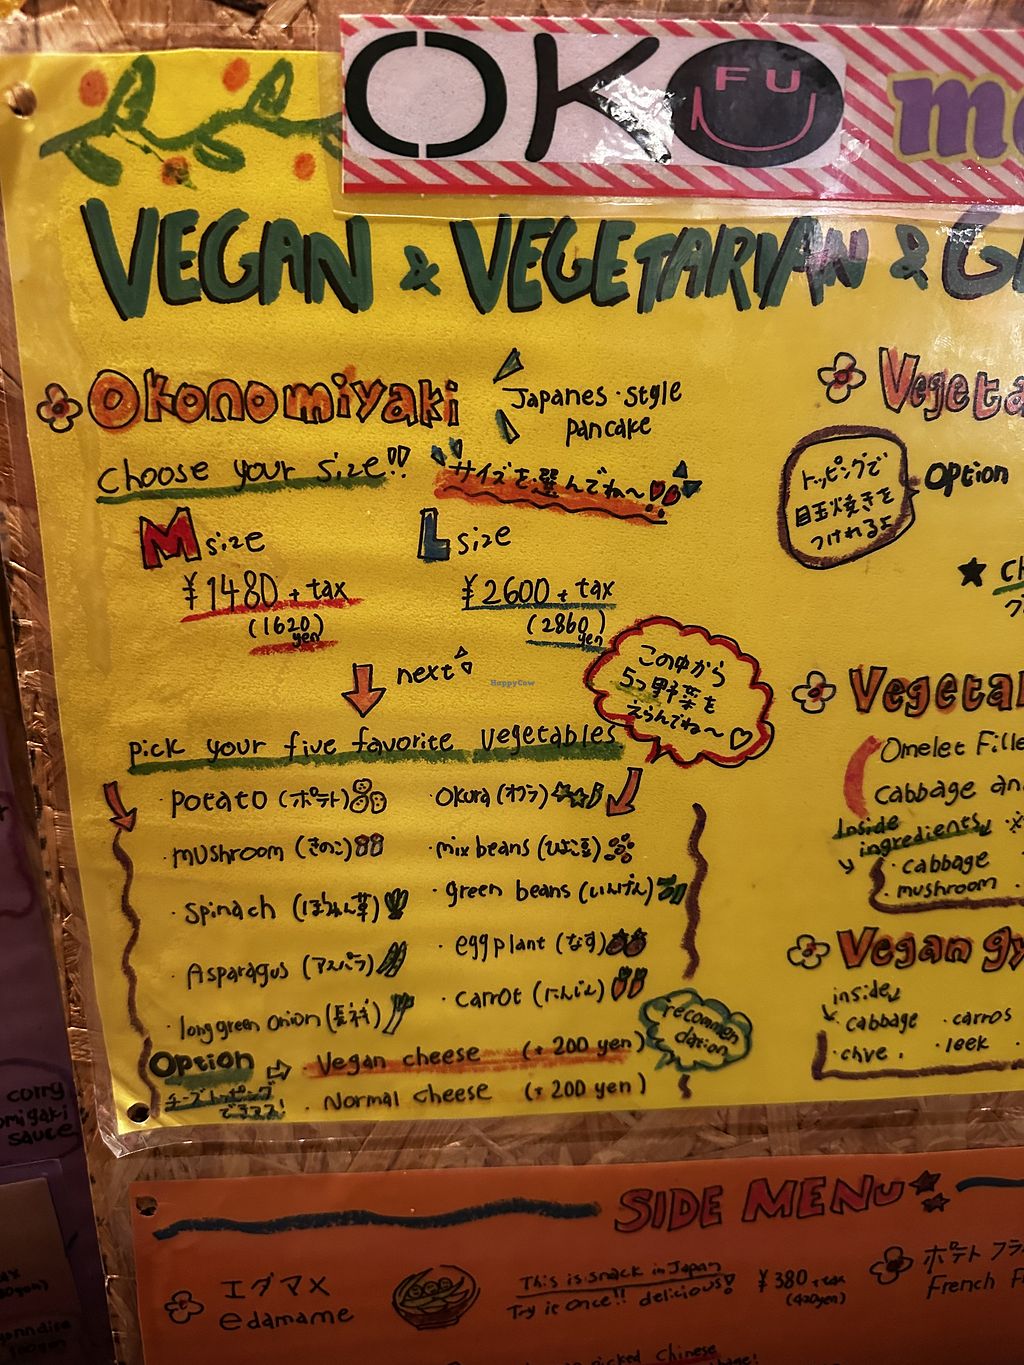 OKO
FU
VEGAN & VEGETARIAN &
Okonomiyaki
Japanes・style
pancake
choose your size!!
サイズを選んでね〜!!
M size
L size
¥1480 + tax
(1620)
yen
¥2600 + tax
(2860)
yen
next
この中から
5つ野菜を
えらんでね〜♡
pick your five favorite vegetables
・potato (ポテト)
・okura (オクラ)
・mushroom (きのこ)
・mix beans (ひよこ豆)
・spinach (ほうれん草)
・green beans (いんげん)
・Asparagus (アスパラ)
・eggplant (なす)
・long green onion (長ネギ)
・carrot (にんじん)
recommen
dation
Option ⇨ ・Vegan cheese (+ 200 yen)
チーズトッピング
できるよ!
・Normal cheese (+ 200 yen)
トッピングで
目玉焼きを
つけれるよ
Option
★
Omelet
cabbage
Inside
ingredients
・cabbage
・mushroom
Vegan
inside
・cabbage ・carros
・chive, ・leek
SIDE MENU
エダマメ
edamame
This is snack in Japan
Try it once!! delicious!
¥380 + tax
(420yen)
ポテト
French
Chinese
sauce
HappyCow